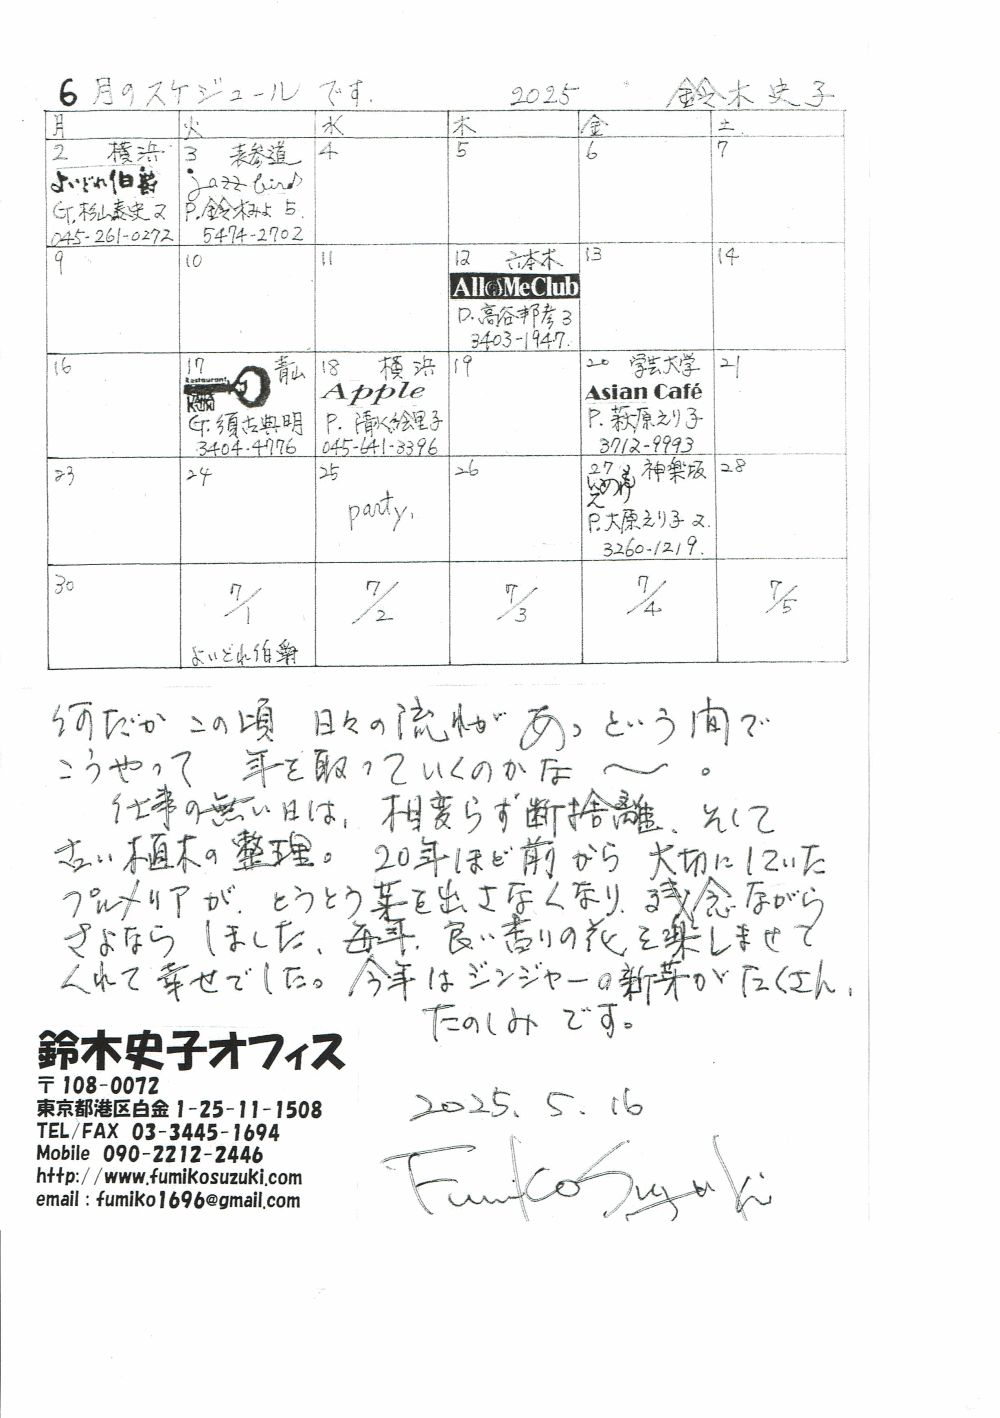 6月のスケジュールです. 2025 鈴木史子
月 火 水 木 金 土
2 横浜
よいどれ伯爵
G.杉山泰史 2
045-261-0272
3 表参道
jazz bird
P.鈴木みよ 5.
5474-2702
4
5
6
7
9
10
11
12 六本木
All of Me Club
D.高谷邦彦 3
3403-1947.
13
14
16
17 青山
Restaurant
G.須古典明
3404-4776
18 横浜
Apple
P. 清水絵里子
045-641-3396
19
20 学芸大学
Asian Café
P. 萩原えり子
3712-9993
21
23
24
25
party.
26
27 神楽坂
もりのいえ
P.大原えり子 2.
3260-1219.
28
30
7/1
よいどれ伯爵
7/2
7/3
7/4
7/5
何だか この頃 日々の流れが あっという間で
こうやって 年を取っていくのかな〜。
仕事の無い日は, 相変らず断捨離、そして
古い植木の整理。20年ほど前から 大切にしていた
プルメリアが、とうとう葉を出さなくなり、残念ながら
さよなら しました、毎年、良い香りの花を楽しませて
くれて幸せでした。今年はジンジャーの新芽がたくさん、
たのしみです。
鈴木史子オフィス
〒108-0072
東京都港区白金1-25-11-1508
TEL/FAX 03-3445-1694
Mobile 090-2212-2446
http://www.fumikosuzuki.com
email : fumiko1696@gmail.com
2025. 5. 16
Fumiko Suzuki